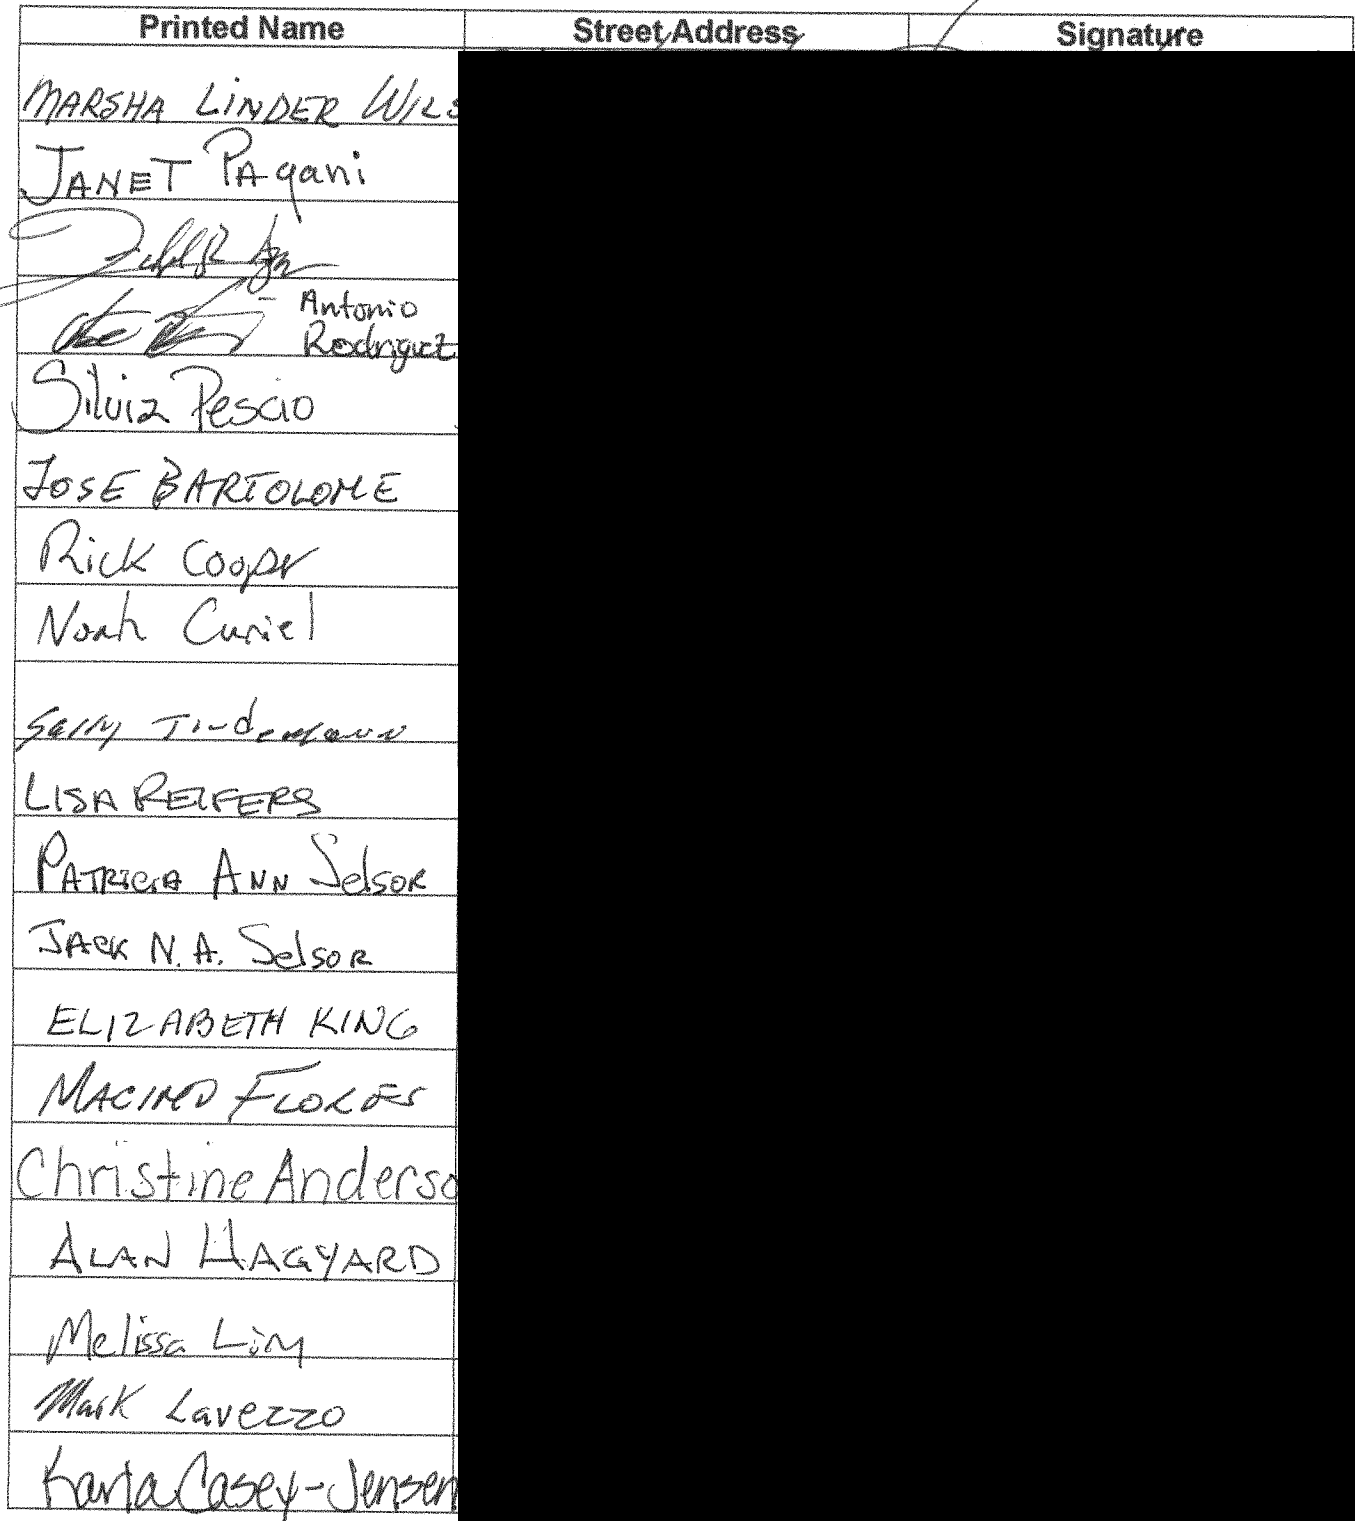 Printed Name Street Address Signature
MARSHA LINDER WILS
JANET PAgani
- Antonio
Rodriguez
Silvia Pescio
JOSE BARTOLOME
Rick Cooper
Noah Curiel
Sally Tindemann
LISA REIFERS
PATRICIA ANN Selsor
JACK N.A. Selsor
ELIZABETH KING
MACIMO FLORES
Christine Anderso
ALAN HAGYARD
Melissa Lim
Mark Lavezzo
Karla Casey-Jensen